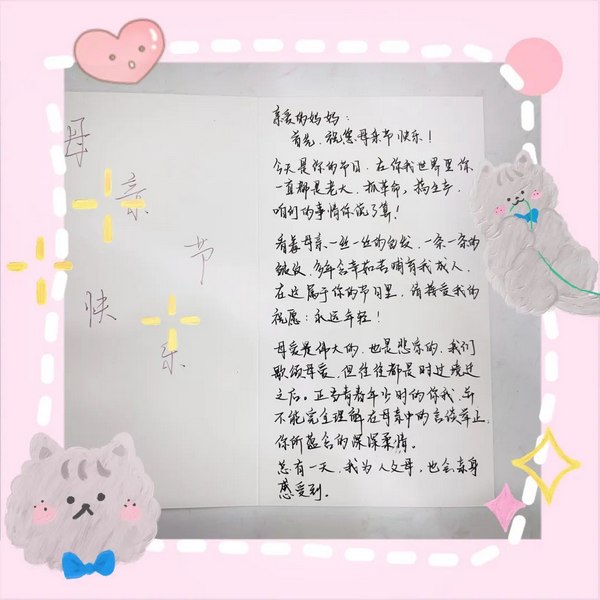 母
亲
节
快
乐
亲爱的妈妈:
首先,祝您母亲节快乐!
今天是你的节日,在你我世界里你
一直都是老大,抓革命,搞生产,
咱们的事情你说了算!
看着母亲一丝一丝的白发,一条一条的
皱纹,多年含辛如苦哺育我成人,
在这属于你的节日里,请接受我的
祝愿:永远年轻!
母爱是伟大的,也是悲哀的,我们
歌颂母爱,但往往都是时过境迁
之后。正当青春年少时的你我,并
不能完全理解在母亲中的言谈举止,
你所蕴含的深深柔情。
总有一天,我为人父母,也会亲身
感受到.